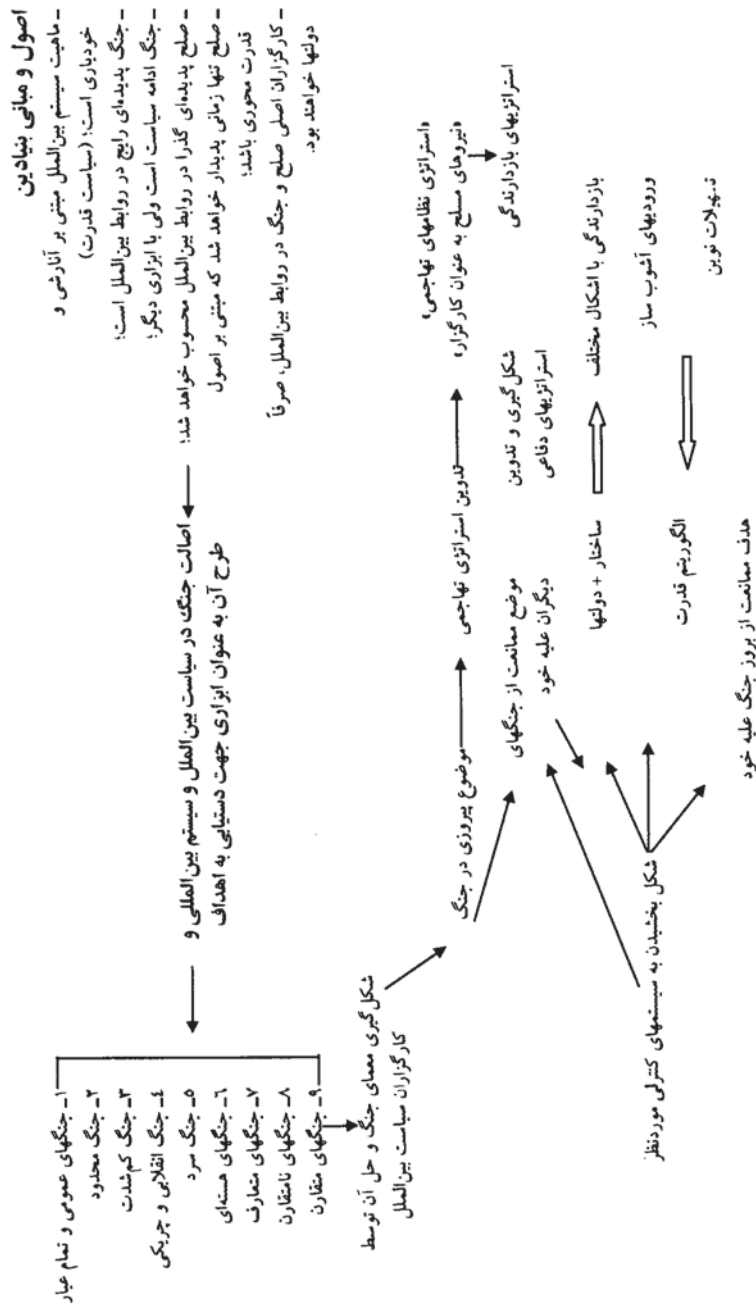 اصول و مبانی بنیادین
ـ ماهیت سیستم بین‌الملل مبتنی بر آنارشی و
خودیاری است؛ (سیاست قدرت)
ـ جنگ پدیده‌ای رایج در روابط بین‌الملل است؛
ـ جنگ ادامه سیاست است ولی با ابزاری دیگر؛
ـ صلح پدیده‌ای گذرا در روابط بین‌الملل محسوب خواهد شد؛
ـ صلح تنها زمانی پدیدار خواهد شد که مبتنی بر اصول
قدرت محوری باشد؛
ـ کارگزاران اصلی صلح و جنگ در روابط بین‌الملل، صرفاً
دولتها خواهند بود.
اصالت جنگ در سیاست بین‌الملل و سیستم بین‌المللی و
طرح آن به عنوان ابزاری جهت دستیابی به اهداف
۱ـ جنگهای عمومی و تمام عیار
۲ـ جنگ محدود
۳ـ جنگ کم‌شدت
۴ـ جنگ انقلابی و چریکی
۵ـ جنگ سرد
۶ـ جنگهای هسته‌ای
۷ـ جنگهای متعارف
۸ـ جنگهای نامتقارن
۹ـ جنگهای متقارن
شکل‌گیری معمای جنگ و حل آن توسط
کارگزاران سیاست بین‌الملل
موضوع پیروزی در جنگ
تدوین استراتژی تهاجمی
«استراتژی نظامهای تهاجمی»
«نیروهای مسلح به عنوان کارگزار»
استراتژیهای بازدارندگی
موضع ممانعت از جنگهای
دیگران علیه خود
شکل‌گیری و تدوین
استراتژیهای دفاعی
ساختار + دولتها
بازدارندگی با اشکال مختلف
شکل بخشیدن به سیستمهای کنترلی موردنظر
الگوریتم قدرت
ورودیهای آشوب ساز
تسهیلات نوین
هدف ممانعت از بروز جنگ علیه خود